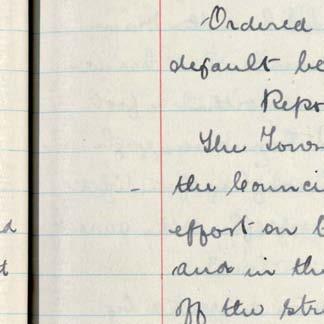 Ordered
default be
Repo
The Town
the Counci
effort on b
and in the
off the str
d
t